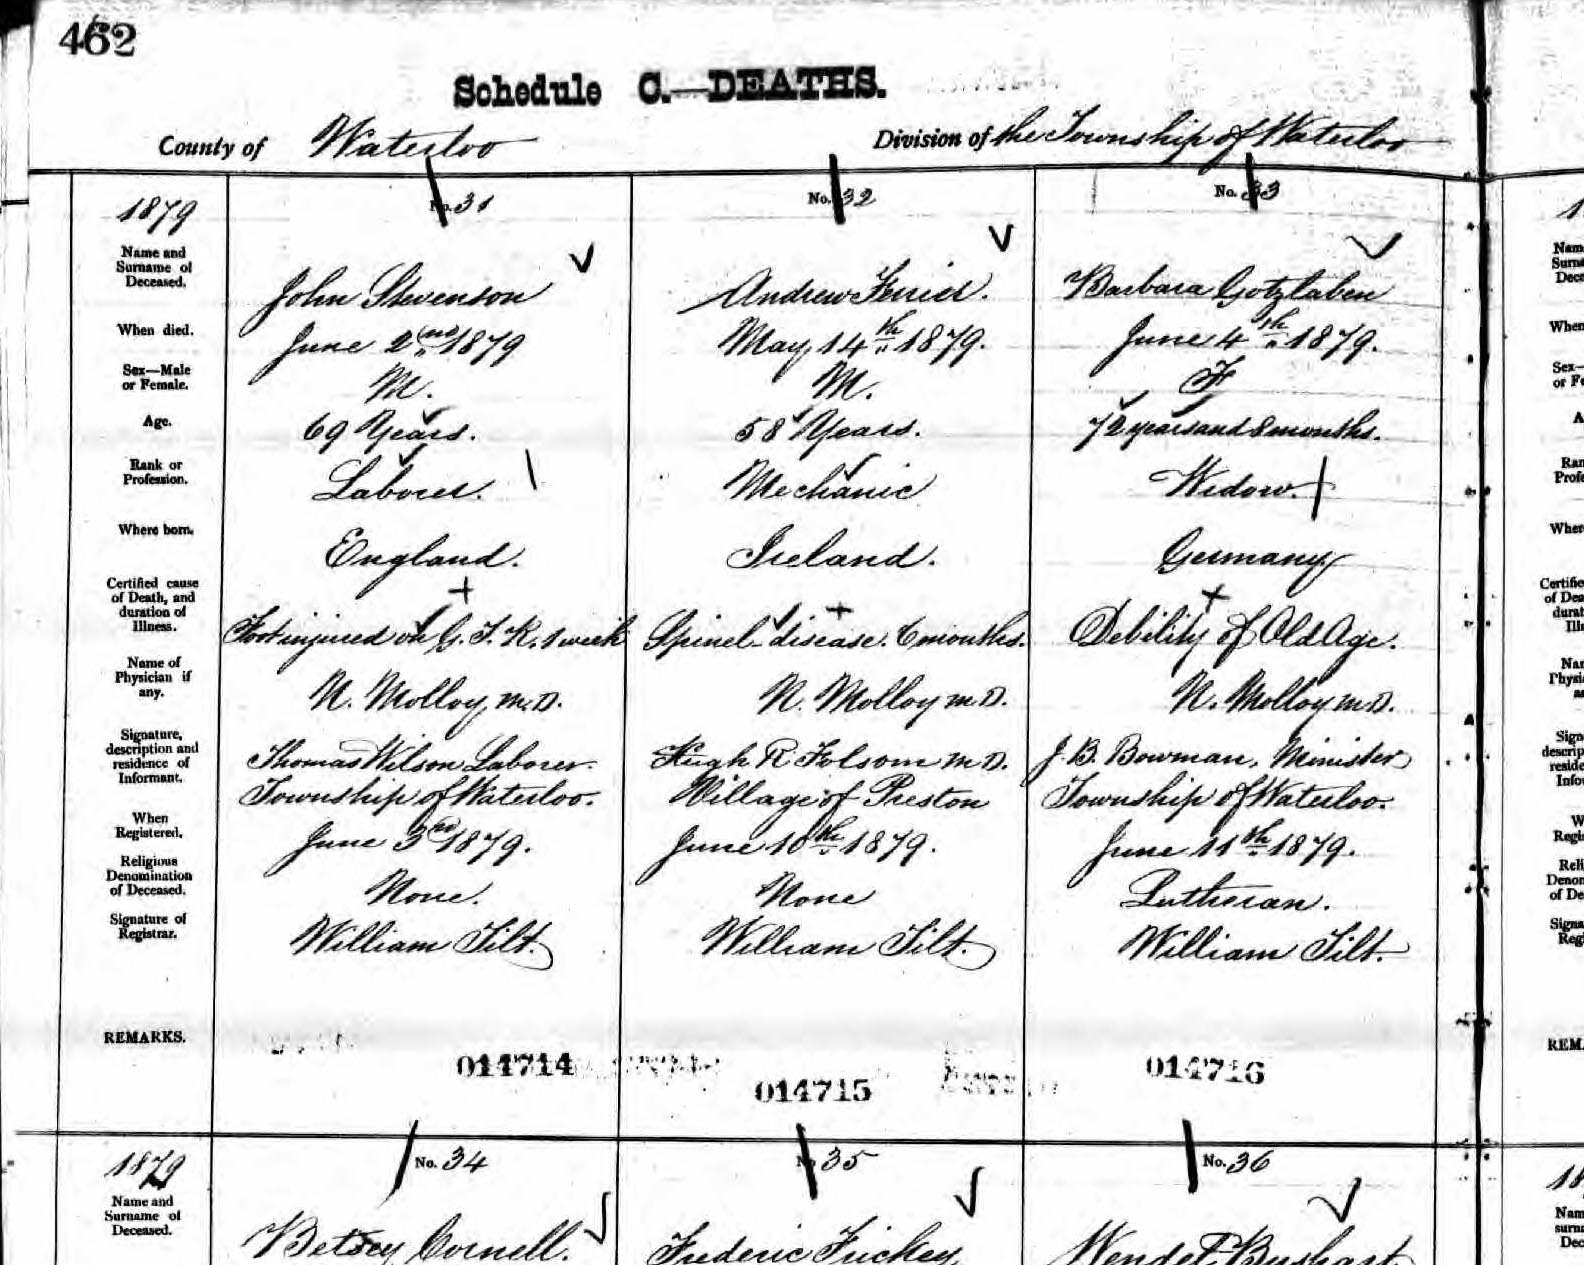 462
Schedule C.—DEATHS.
County of Waterloo Division of the Township of Waterloo
1879 No. 31 No. 32 No. 33
Name and Surname of Deceased. John Stevenson Andrew Barbara
When died. June 2nd 1879 May 14th 1879. June 4th 1879.
Sex—Male or Female. M. M. F
Age. 69 Years. 58 Years. 72 years and 8 months.
Rank or Profession. Laborer. Mechanic Widow.
Where born. England. Ireland. Germany
Certified cause of Death, and duration of Illness. Foot injured on G. T. R. 1 week Spinel disease. 6 months. Debility of Old Age.
Name of Physician if any. N. Molloy, M.D. N. Molloy M.D. N. Molloy M.D.
Signature, description and residence of Informant. Thomas Wilson Laborer. Hugh R Folsom M.D. J. B. Bowman, Minister
Township of Waterloo. Village of Preston Township of Waterloo.
When Registered. June 3rd 1879. June 10th 1879. June 11th 1879.
Religious Denomination of Deceased. None. None Lutheran.
Signature of Registrar. William Tilt. William Tilt. William Tilt.
REMARKS. 014714 014715 014716
1879 No. 34 No. 35 No. 36
Name and Surname of Deceased. Betsey Cornell. Frederic Frickey, Wendel Bushart